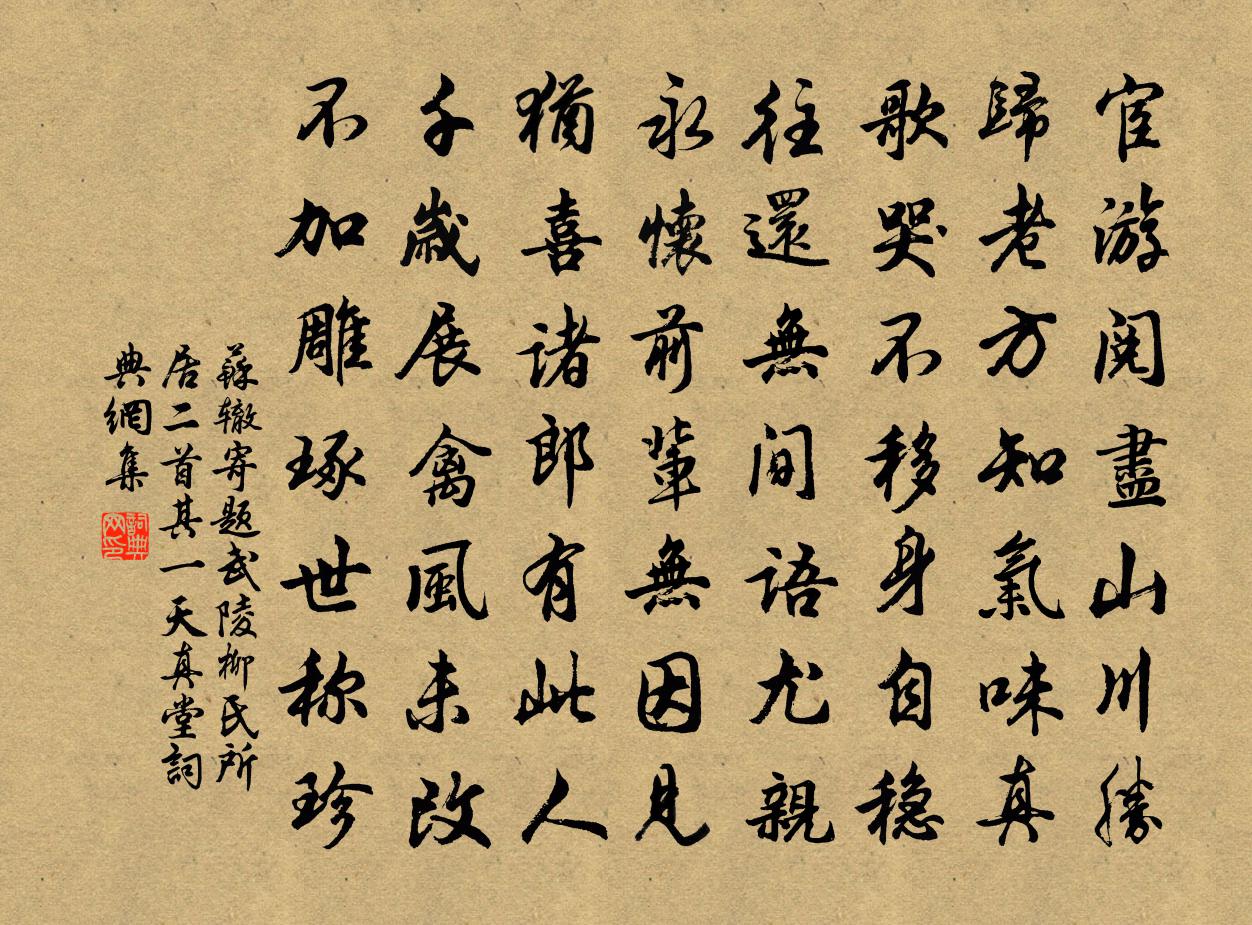 宦游閱盡山川勝
歸老方知氣味真
歌哭不移身自穩
往還無間語尤親
永懷前輩無因見
猶喜諸郎有此人
千歲展禽風未改
不加雕琢世称珍
蘇轍寄題武陵柳氏所
居二首其一天真堂詞
典網集
詞典网印